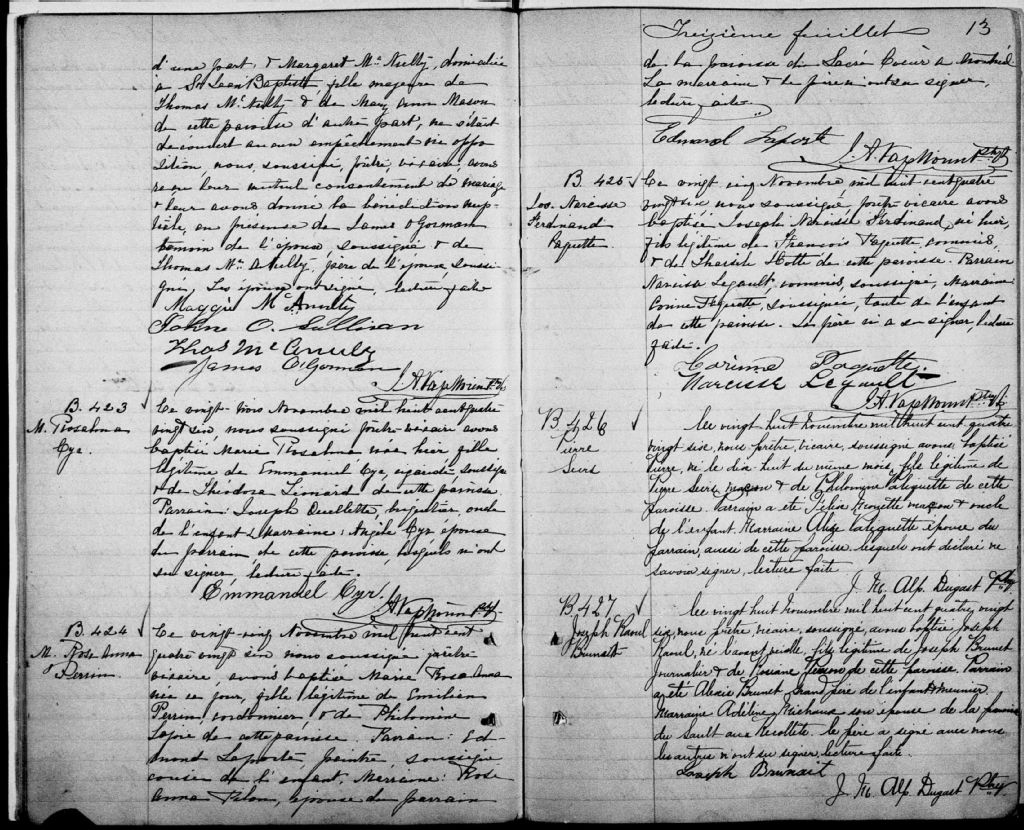 d'une part, & Margaret Mc Nulty, domiciliée
à St Jean Baptiste, fille majeure de
Thomas Mc Nulty & de Mary Ann Mason
de cette paroisse d'autre part, ne s'étant
découvert aucun empêchement ni oppo
sition, nous, soussigné, prêtre, vicaire, avons
reçu leur mutuel consentement de mariage
& leur avons donné la bénédiction nup-
tiale, en présence de James O'Gorman
témoin de l'époux, soussigné & de
Thomas Mc Nulty, père de l'épouse, soussi-
gné. Les époux ont signé, lecture faite
Maggie Mc Anulty
John O. Sullivan
Thos Mc Anulty
James O'Gorman
J. A. Vaillant Ptre
B. 423
M. Rosalma
Cyr.
Ce vingt-trois Novembre mil huit cent quatre
vingt six, nous soussigné prêtre vicaire avons
baptisé Marie Rosalma née hier fille
légitime de Emmanuel Cyr, soussigné
& de Théodora Léonard de cette paroisse
Parrain: Joseph Ouellette, oncle
de l'enfant & Marraine: Angèle Cyr épouse
du parrain de cette paroisse, lesquels n'ont
su signer, lecture faite.
Emmanuel Cyr.
Ptre
B. 424
M. Rose Anna
Perrin
Ce vingt-cinq Novembre mil huit cent
quatre vingt six nous soussigné prêtre
vicaire, avons baptisé Marie Rose Anna
née ce jour, fille légitime de Emilien
Perrin, cordonnier & de Philomène
de cette paroisse. Parrain: Ed-
mond Laporte, peintre, soussigné
cousin de l'enfant. Marraine: Rose
Anna épouse du parrain
Treizième feuillet 13
de la paroisse du Sacré Coeur à Montréal
La marraine & le père n'ont su signer,
lecture faite
Edmond Laporte
Ptre
B. 425
Jos. Narcisse
Ferdinand
Paquette
Ce vingt cinq Novembre mil huit cent quatre
vingt six nous soussigné prêtre vicaire avons
baptisé Joseph Narcisse Ferdinand, né hier,
fils légitime de François Paquette, commis,
& de Hotte de cette paroisse. Parrain
Narcisse Legault, commis, soussigné, Marraine
Corine Paquette, soussignée, tante de l'enfant
de cette paroisse. Le père n'a su signer, lecture
faite.
Corinne Paquette
Narcisse Legault
Ptre
B. 426
Pierre
Seers
Le vingt huit novembre mil huit cent quatre
vingt six, nous prêtre, vicaire, soussigné avons baptisé
Pierre, né le dix huit du même mois, fils légitime de
Pierre Seers maçon & de Philomène Paliquette de cette
paroisse. Parrain a été Félix maçon & oncle
de l'enfant. Marraine Alize Paliquette épouse du
parrain, aussi de cette paroisse, lesquels ont déclaré ne
savoir signer, lecture faite
J. M. Alp. Dugast Ptre
B. 427
Joseph Raoul
Brunait
Le vingt huit novembre mil huit cent quatre vingt
six, nous prêtre, vicaire, soussigné, avons baptisé Joseph
Raoul, né l'avant veille, fils légitime de Joseph Brunet
Journalier & de Rosiane de cette paroisse. Parrain
a été Alexis Brunet, grand père de l'enfant & meunier
Marraine Adéline Michaud son épouse de la paroisse
du Sault aux Recollets. le père a signé avec nous
les autres n'ont su signer, lecture faite.
Joseph Brunait
J. M. Alp. Dugast Ptre